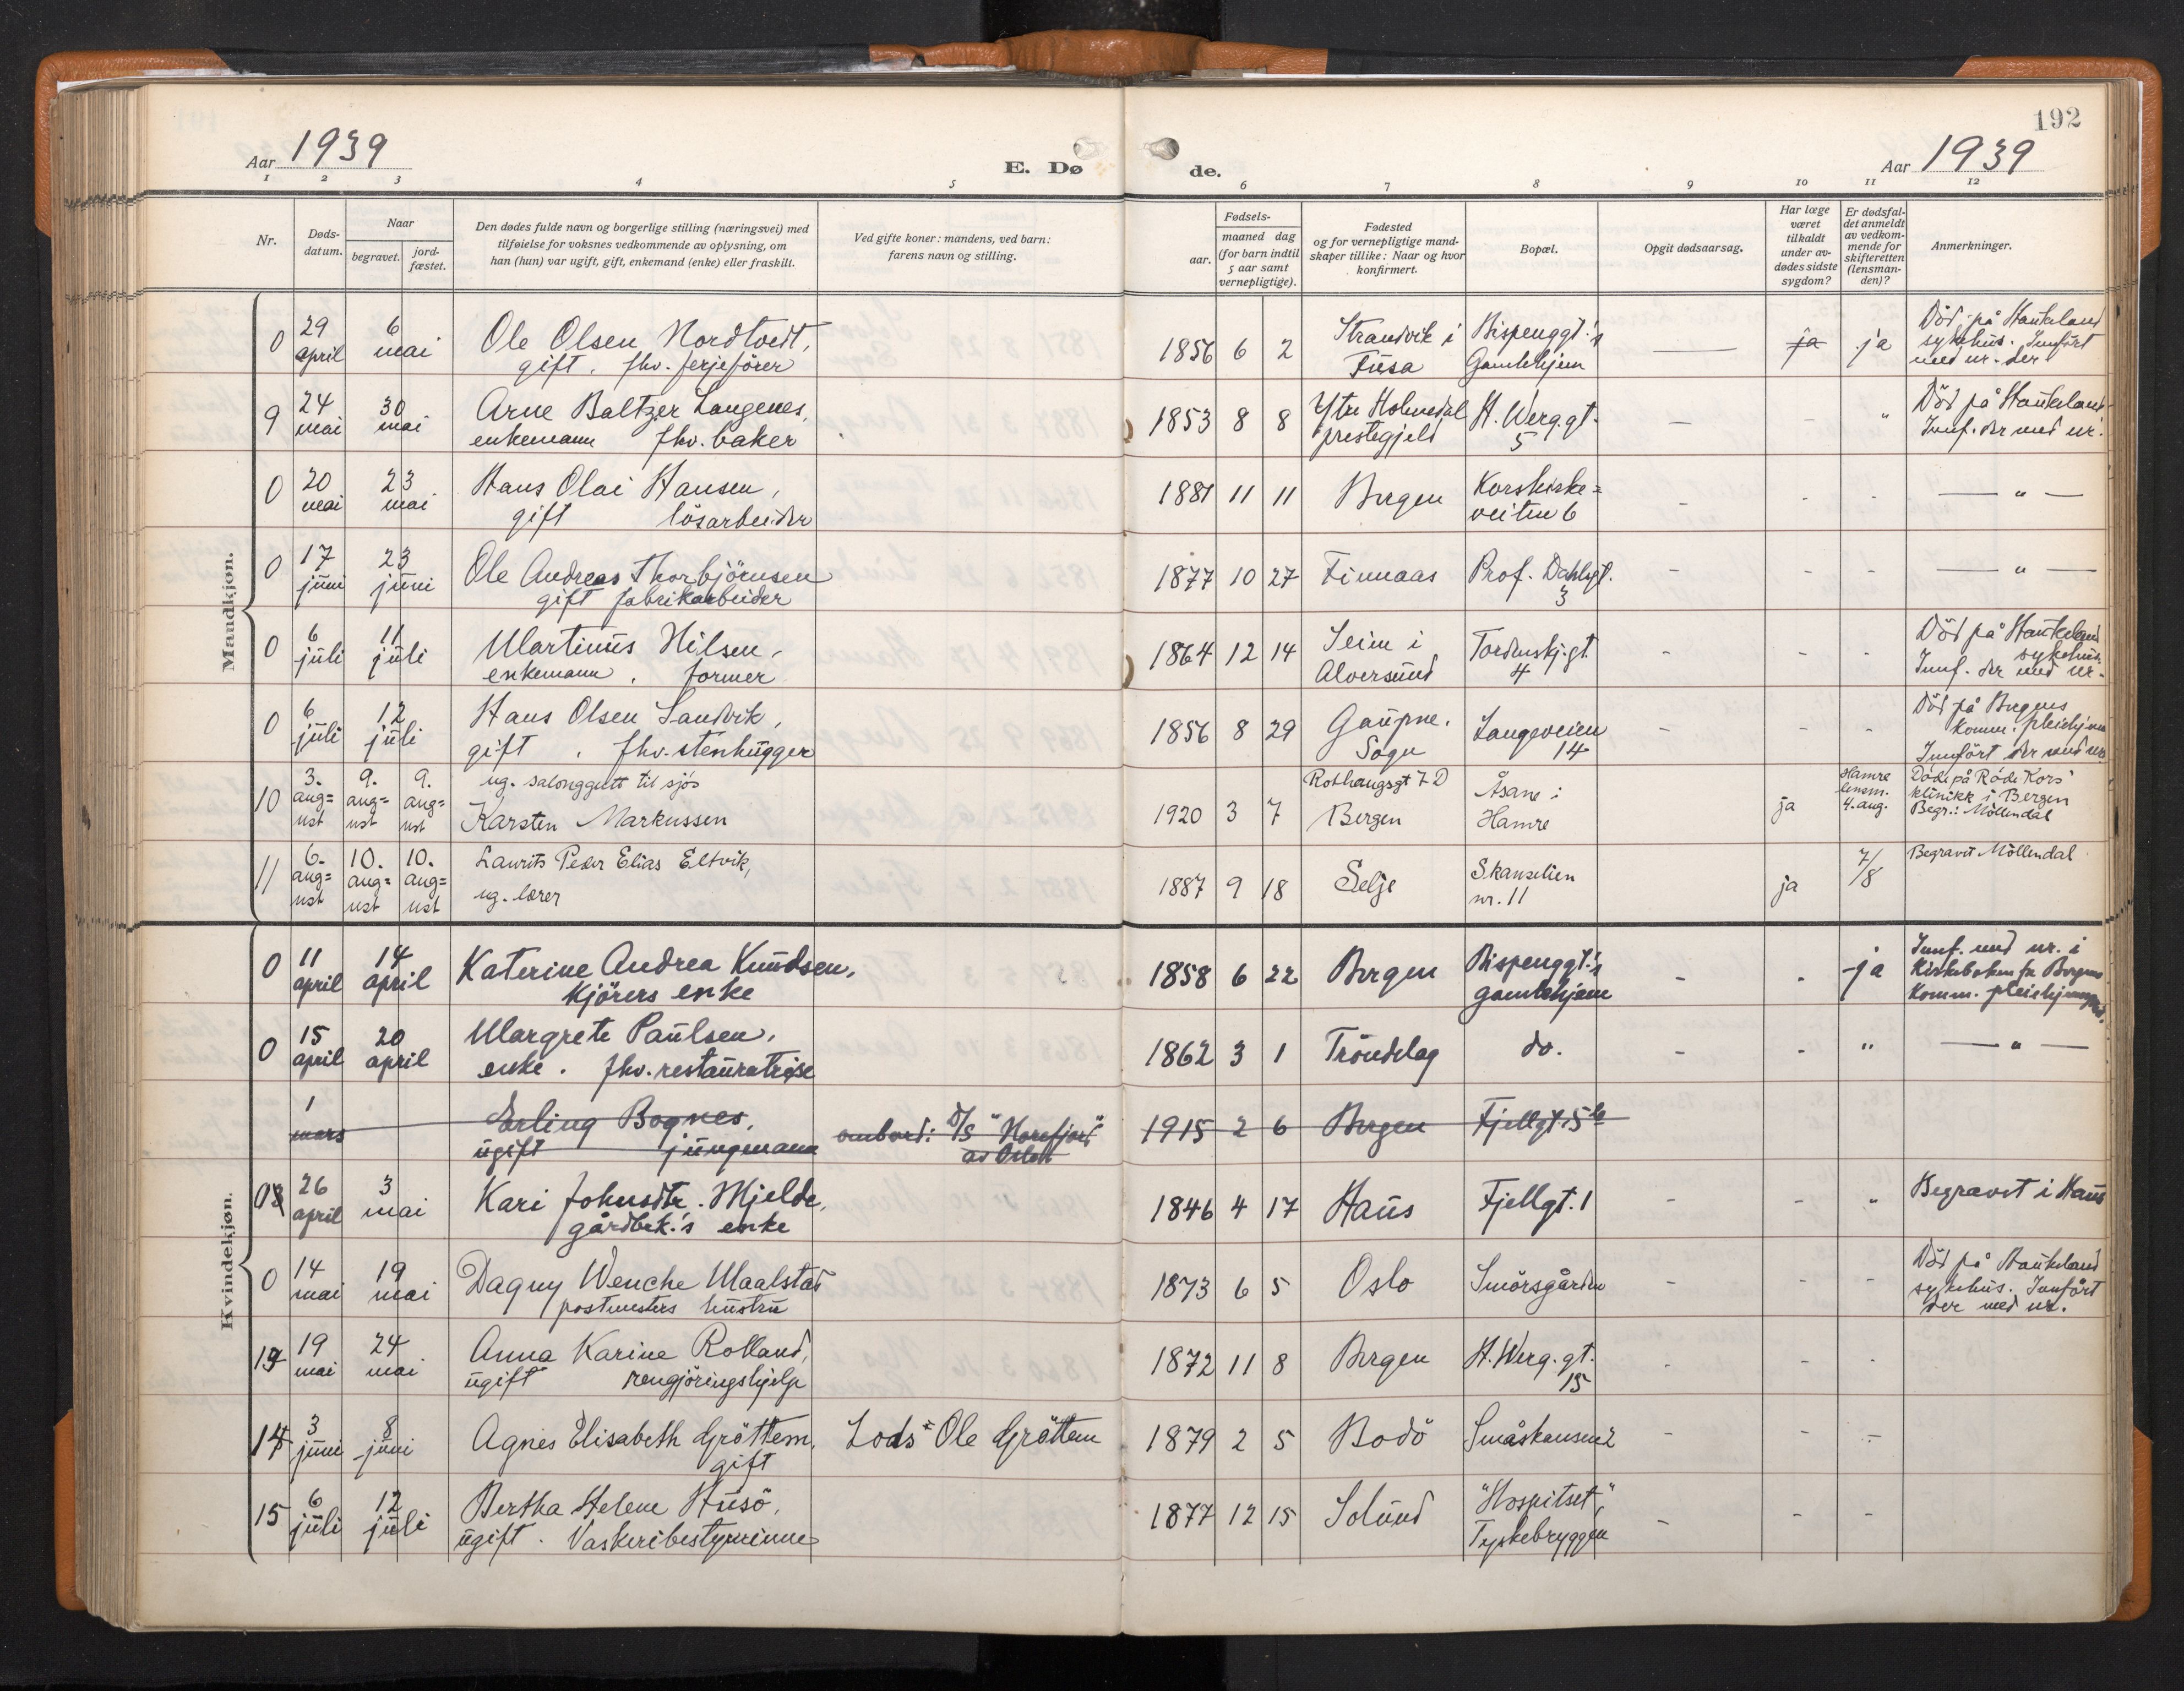 192
Aar 1939
E. Dø
de.
Aar 1939
1 2 3 4 5 6 7 8 9 10 11 12
Nr.
Døds-
datum.
Naar
begravet.
jord-
fæstet.
Den dødes fulde navn og borgerlige stilling (næringsvei) med
tilføielse for voksnes vedkommende av oplysning, om
han (hun) var ugift, gift, enkemand (enke) eller fraskilt.
Ved gifte koner: mandens, ved barn:
farens navn og stilling.
Fødsels-
aar.
maaned dag
(for barn indtil
5 aar samt
vernepligtige).
Fødested
og for vernepligtige mand-
skaper tillike: Naar og hvor
konfirmert.
Bopæl.
Opgit dødsaarsag.
Har læge
været
tilkaldt
under av-
dødes sidste
sygdom?
Er dødsfal-
det anmeldt
av vedkom-
mende for
skifteretten
(lensman-
den)?
Anmerkninger.
Mandkjøn.
0 29 april 6 mai Ole Olsen Nordtvedt,
gift. fhv. ferjefører
1856 6 2 Strandvik i
Fusa
Bispenggt.'s
Gamlehjem
— ja ja
Död på Haukeland
sykehus. Innfört
med nr. der
9 24 mai 30 mai Arne Baltzer Langenes,
enkemann fhv. baker
1853 8 8 Ytre Holmedal
prestegjeld
H. Werg.gt.
5
- - "
Död på Haukeland
Innf. der med nr.
0 20 mai 23 mai Hans Olai Hansen,
gift lösarbeider
1881 11 11 Bergen Korskirke=
veiten 6
- - - — " —
0 17 juni 23 juni Ole Andreas Thorbjörnsen
gift fabrikarbeider
1877 10 27 Finnaas Prof. Dahlsgt.
3
- - - — " —
0 6 juli 11 juli Martinus Nilsen,
enkemann, former
1864 12 14 Seim i
Alversund
Tordenskj.gt.
4
- - -
Död på Haukeland
sykehus.
Innf. der med nr.
0 6 juli 12 juli Hans Olsen Sandvik,
gift, fhv. stenhugger
1856 8 29 Gaupne,
Sogn
Langeveien
14
- - -
Död på Bergens
komm. pleiehjem
Innfört der med nr.
10 3. aug=ust 9. aug=ust 9. aug=ust ug. salonggutt til sjös
Karsten Markussen
1920 3 7 Rothaugsgt 7 D
Bergen
Åsane i
Hamre
ja Hamre
lensm.
4. aug.
Döde på Röde Kors'
klinikk i Bergen
Begr.: Möllendal
11 6. aug=ust 10. aug=ust 10. aug=ust Laurits Peder Elias Eltvik,
ug. lærer
1887 9 18 Selje Skanselien
nr. 11
ja 7/8 Begravet Möllendal
Kvindekjøn.
0 11 april 14 april Katerine Andrea Knudsen,
Kjörers enke
1858 6 22 Bergen Bispenggt.'s
gamlehjem
- - ja
Innf. med nr. i
Kirkeboken for Bergens
Komm. pleiehjem
0 15 april 20 april Margrete Paulsen,
enke. fhv. restauratrise
1862 3 1 Tröndelag do.
- - " — " —
1 mars Erling Bognes,
ugift jungmann
ombord: D/S "Norefjord"
av Oslo
1915 2 6 Bergen Fjellgt. 5 b
26 april 3 mai Kari Johnsdtr. Mjelde,
gårdbrk.'s enke
1846 4 17 Haus Fjellgt. 1
- - " Begravet i Haus
0 14 mai 19 mai Dagny Wenche Maalstad
postmesters hustru
1873 6 5 Oslo Smörsgården
- - -
Död på Haukeland
sykehus. Innfört
der med nr.
13 19 mai 24 mai Anna Karine Rolland,
ugift rengjöringshjelp
1872 11 8 Bergen H. Werg.gt.
15
- - -
14 3 juni 8 juni Agnes Elisabeth Gröttem,
gift
Lods Ole Gröttem
1879 2 5 Bodö Småskansen 2
- - -
15 6 juli 12 juli Bertha Helene Husö,
ugift. Vaskeribestyrerinne
1877 12 15 Solund "Hospitset",
Tyskebryggen
- - -